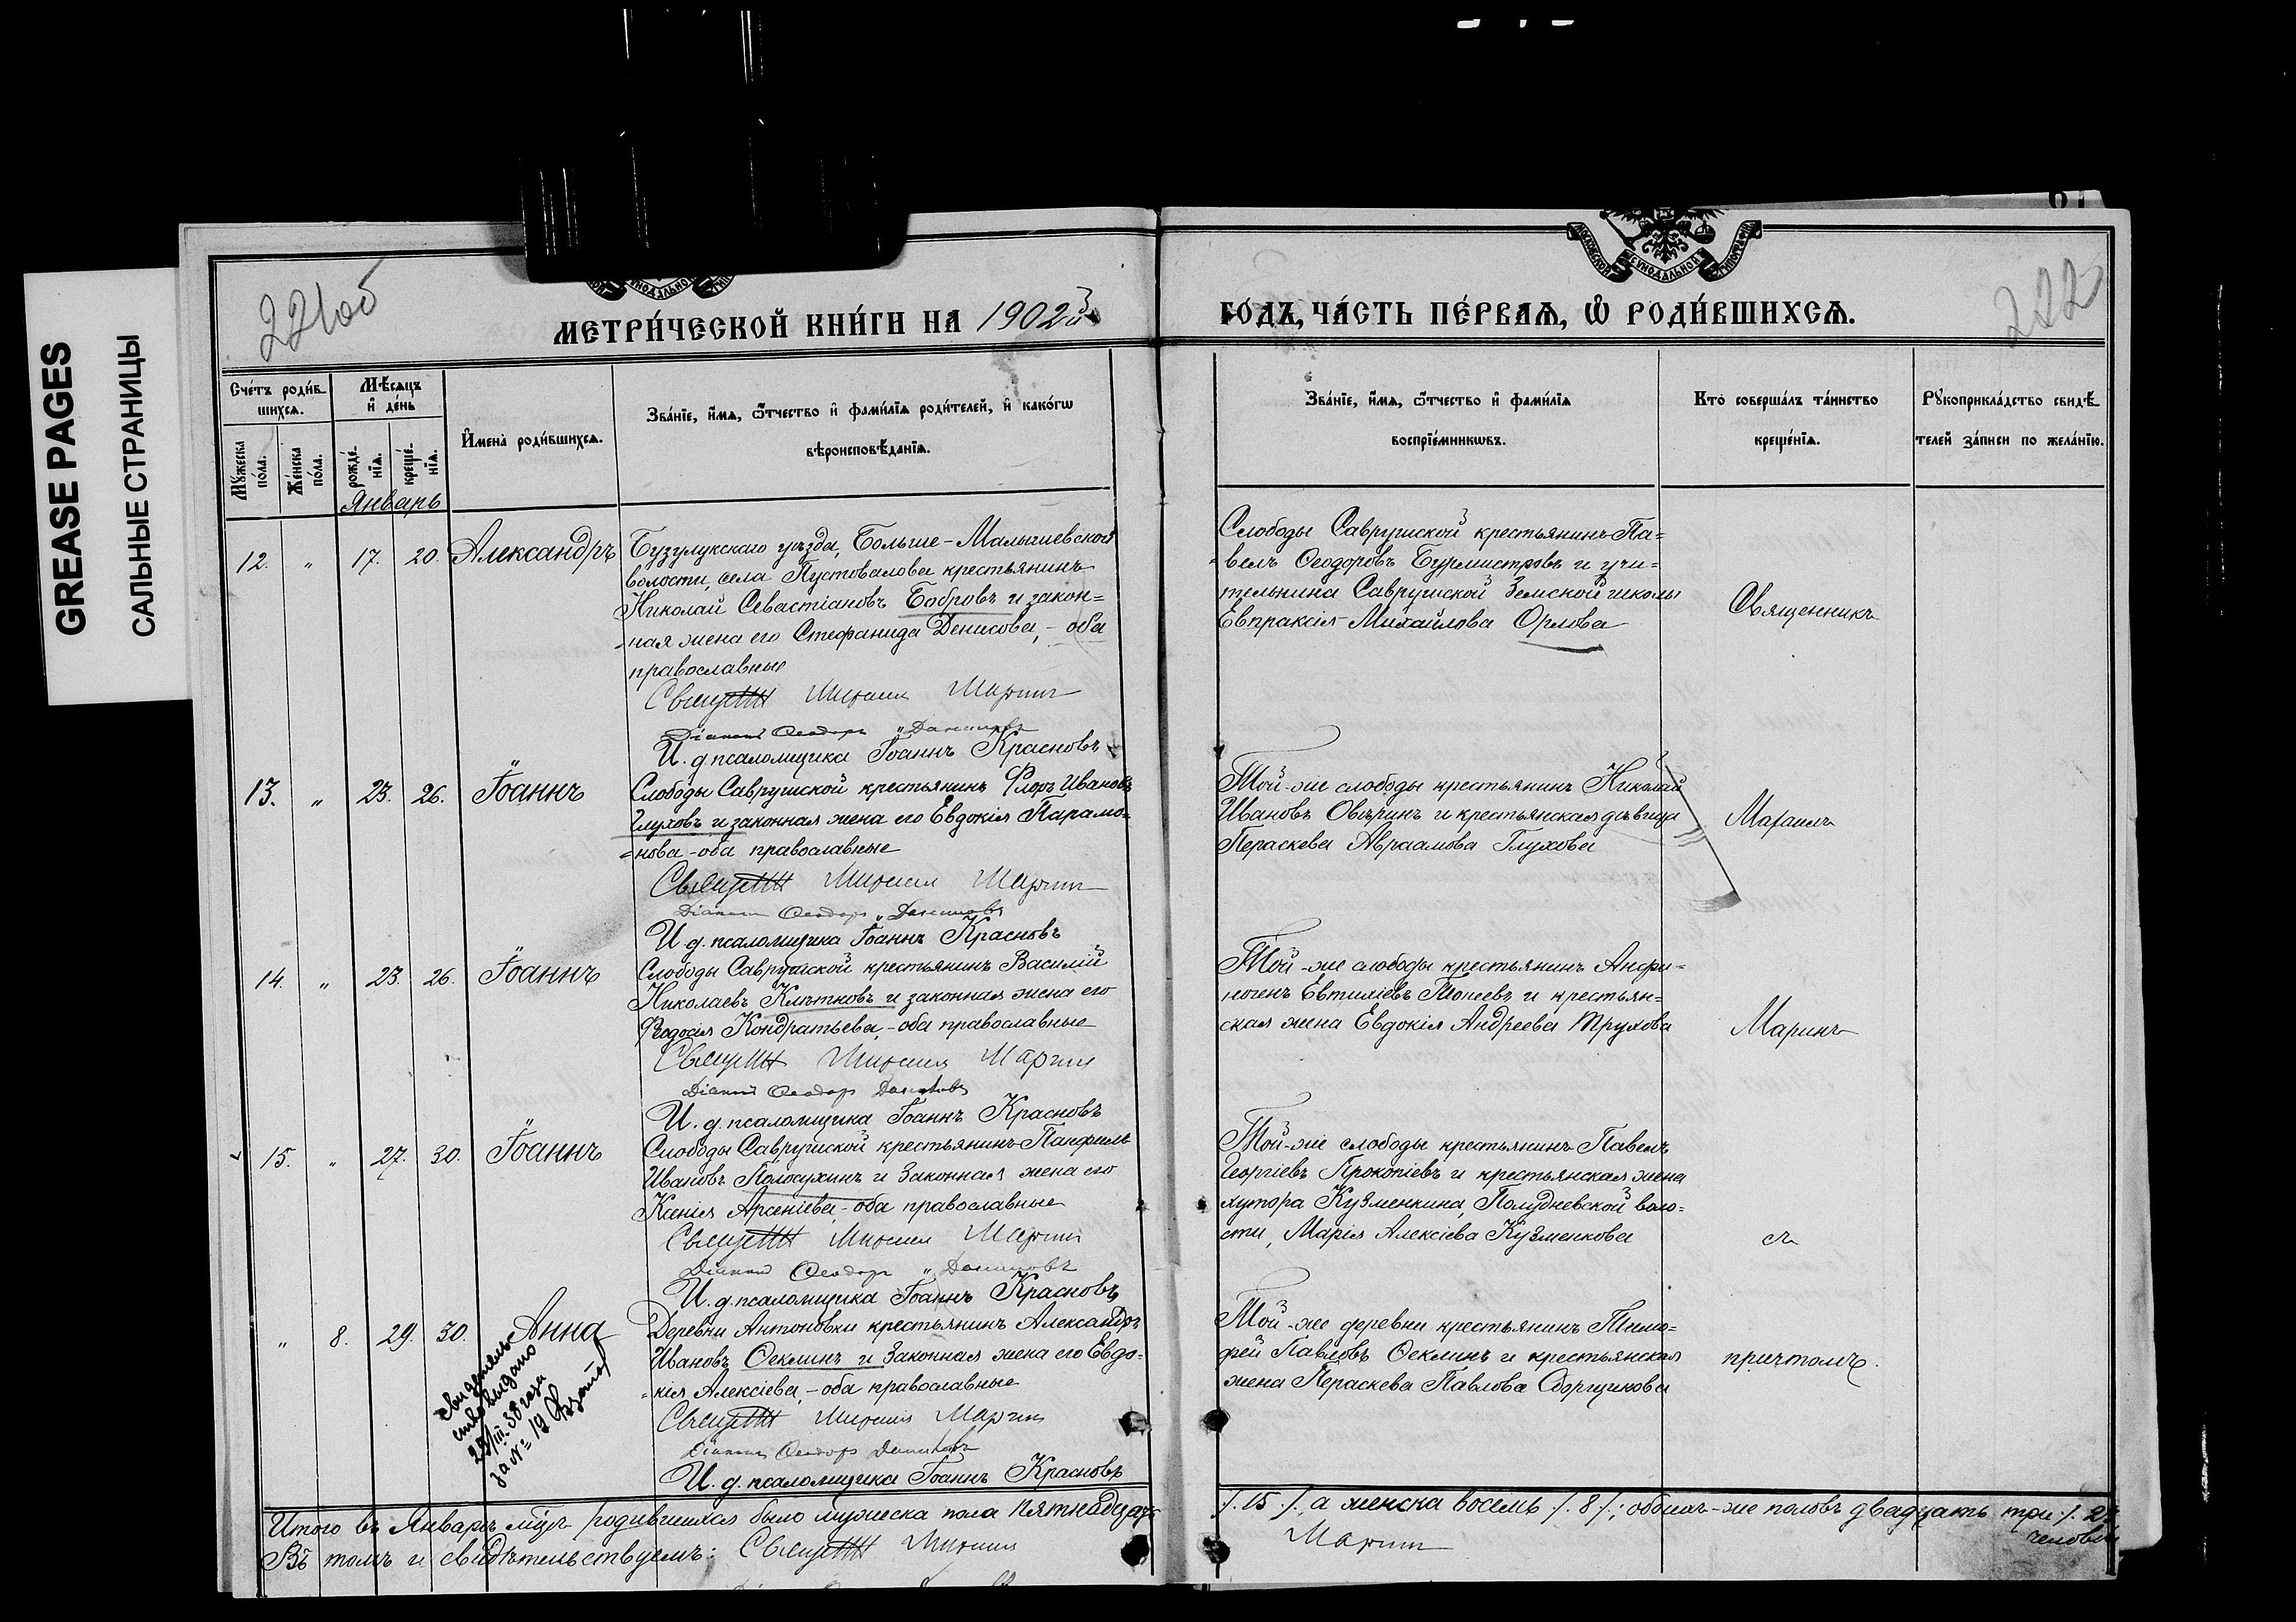 GREASE PAGES
САЛЬНЫЕ СТРАНИЦЫ
221об
222
МЕТРИ́ЧЕСКОЙ КНИ́ГИ НА 1902й
ГОДЪ, ЧА́СТЬ ПЕ́РВАѦ, Ѿ РОДИ́ВШИХСѦ.
МОСКОВСКОЙ СѴНОДАЛЬНОЙ ТИПОГРАФІИ
Сче́тъ роди́в-
шихсѧ.
Мѣ́сѧцъ
и҆ де́нь
Мꙋ́жеска
по́ла.
Же́нска
по́ла.
рожде́-
нїѧ.
креще́-
нїѧ.
И҆мена̀ роди́вшихсѧ.
Зва́нїе, и҆́мѧ, ѻ҆́тчество и҆ фами́лїѧ роди́телей, и҆ како́гѡ
вѣроисповѣ́данїѧ.
Зва́нїе, и҆́мѧ, ѻ҆́тчество и҆ фами́лїѧ
воспрїе́мникѡвъ.
Кто̀ соверша́лъ та́инство
креще́нїѧ.
Рꙋкоприкла́дство свидѣ́-
телей за́писи по жела́нїю.
Январь
12. " 17. 20. Александръ
Бузулукскаго уѣзда, Больше-Малышевской
волости, села Пустовалова крестьянинъ
Николай Севастіановъ Бобровъ и закон=
=ная жена его Стефанида Денисова, - оба
православные
Михаилъ Маринъ
Діаконъ Ѳеодоръ
И. д. псаломщика Іоаннъ Красновъ
Слободы Саврушской крестьянинъ Па=
=велъ Ѳеодоровъ Бурмистровъ и учи=
тельница Саврушской Земской школы
Евпраксія Михайлова Орлова
Священникъ
13. " 23. 26. Іоаннъ
Слободы Саврушской крестьянинъ Флоръ Ивановъ
Глуховъ и законная жена его Евдокія Парамо=
=нова - оба православные
Михаилъ Маринъ
Діаконъ Ѳеодоръ
И. д. псаломщика Іоаннъ Красновъ
Той-же слободы крестьянинъ Николай
Ивановъ Овѣринъ и крестьянская дѣвица
Параскева Авраамова Глухова
Михаилъ
14. " 23. 26. Іоаннъ
Слободы Саврушской крестьянинъ Василій
Николаевъ Клѣтковъ и законная жена его
Ѳеодосія Кондратьева, - оба православные
Михаилъ Маринъ
Діаконъ Ѳеодоръ
И. д. псаломщика Іоаннъ Красновъ
Той-же слободы крестьянинъ Анфи=
ногенъ Евтихіевъ и крестьян=
ская жена Евдокія Андреева Трухова
Маринъ
15. " 27. 30. Іоаннъ
Слободы Саврушской крестьянинъ Панфилъ
Ивановъ и законная жена его
Ксенія Арсеніева, - оба православные
Михаилъ Маринъ
Діаконъ Ѳеодоръ
И. д. псаломщика Іоаннъ Красновъ
Той-же слободы крестьянинъ Павелъ
Георгіевъ Прокопіевъ и крестьянская жена
хутора Кузменкина, Полудневской воло=
сти, Марія Алексіева Кузменкова
съ
" 8. 29. 30. Анна
свидетель
ство выдано
за № 19
Деревни Антоновки крестьянинъ Александръ
Ивановъ Ѳеклинъ и законная жена его Евдо=
=кія Алексіева, - оба православные
Михаилъ Маринъ
Діаконъ Ѳеодоръ
И. д. псаломщика Іоаннъ Красновъ
Той-же деревни крестьянинъ Тимо=
фей Павловъ Ѳеклинъ и крестьянская
жена Параскева Павлова
причтомъ.
Итого въ Январѣ м-цѣ родившихся было мужеска пола пятнадцать
/. 15 ./, а женска восемь /. 8 /.; обоихъ-же половъ двадцать три /. 23
человѣкъ
Въ томъ и свидѣтельствуемъ: Михаилъ
Маринъ